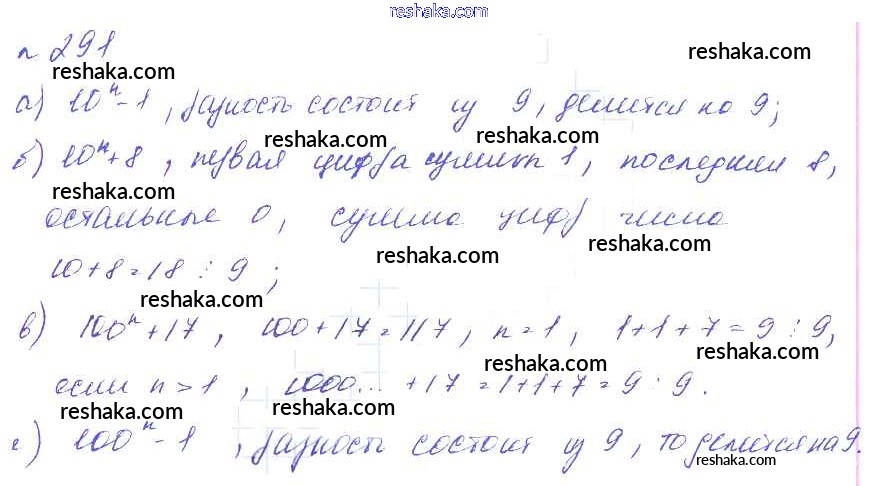 reshaka.com
n 291
reshaka.com reshaka.com
а) 10ⁿ-1, разность состоит из 9, делится на 9;
reshaka.com reshaka.com reshaka.com
б) 10ⁿ+8, первая цифра суммы 1, последняя 8,
reshaka.com
остальные 0, сумма цифр числа
reshaka.com reshaka.com
10+8=18 ⋮ 9 ;
reshaka.com
в) 100ⁿ+17, 100+17=117, n=1, 1+1+7=9 ⋮ 9,
reshaka.com reshaka.com
если n>1, 1000... +17=1+1+7=9 ⋮ 9.
reshaka.com reshaka.com
г) 100ⁿ-1, разность состоит из 9, то делится на 9.
reshaka.com